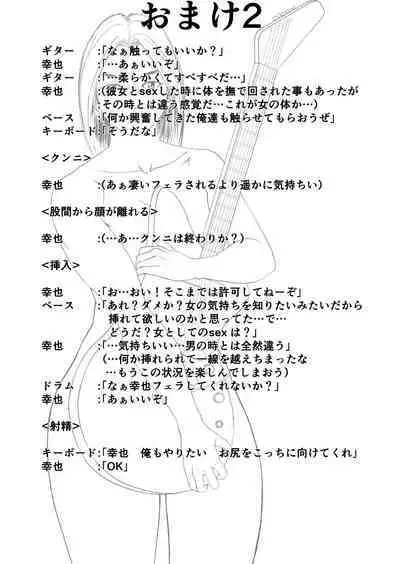 おまけ2
ギター :「なぁ触ってもいいか？」
幸也 :「…あぁいいぞ」
ギター :「…柔らかくてすべすべだ…」
幸也 :(彼女とsexした時に体を撫で回された事もあったが
:その時とは違う感覚だ…これが女の体か…)
ベース :「何か興奮してきた俺達も触らせてもらおうぜ」
キーボード:「そうだな」
<クンニ>
幸也 :(あぁ凄いフェラされるより遥かに気持ちい)
<股間から顔が離れる>
幸也 :(…あ…クンニは終わりか？)
<挿入>
幸也 :「お…おい！そこまでは許可してねーぞ
ベース :「あれ？ダメか？女の気持ちを知りたいみたいだから
挿れて欲しいのかと思ってた…で…
どうだ？女としてのsexは？」
幸也 :「…気持ちいい…男の時とは全然違う」
(…何か挿れられて一線を越えちまったな
…もうこの状況を楽しんでしまおう)
ドラム :「なぁ幸也フェラしてくれないか？」
幸也 :「あぁいいぞ
<射精>
キーボード:「幸也　俺もやりたい　お尻をこっちに向けてくれ」
幸也 :「OK」